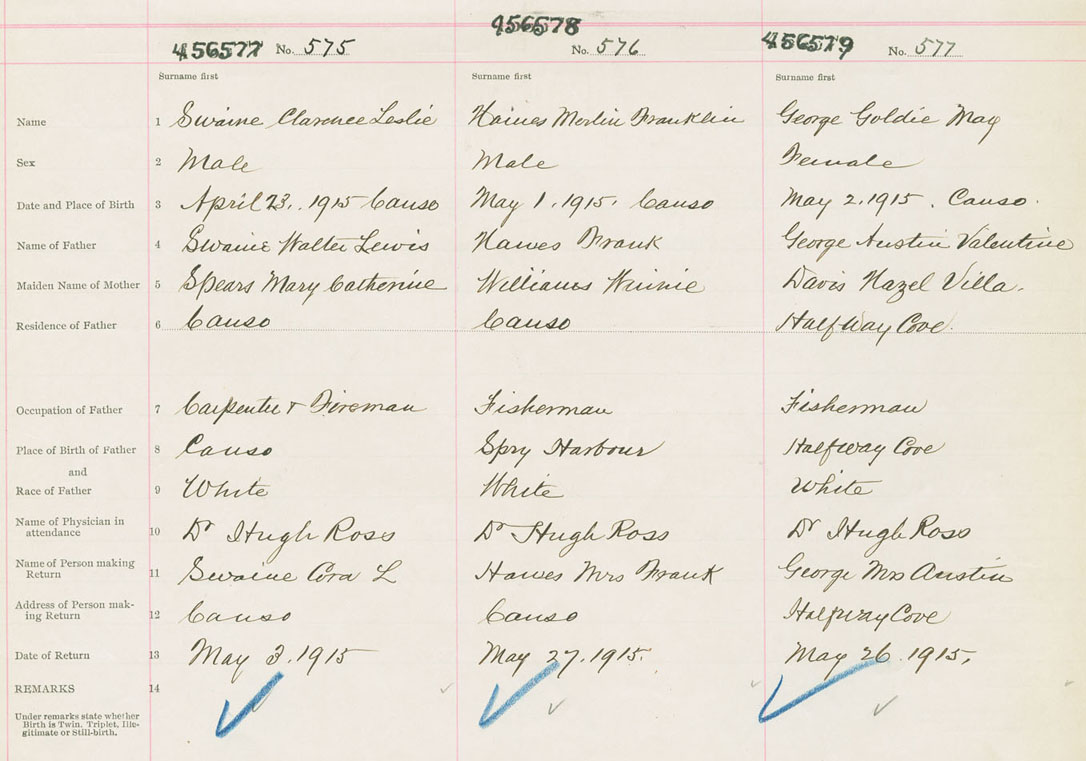 456577 No. 575 456578 No. 576 456579 No. 577
Surname first Surname first Surname first
Name 1 Swaine Clarence Leslie Hawes Merlin Franklin George Goldie May
Sex 2 Male Male Female
Date and Place of Birth 3 April 23, 1915 Canso May 1, 1915, Canso May 2, 1915. Canso.
Name of Father 4 Swaine Walter Lewis Hawes Frank George Austin Valentine
Maiden Name of Mother 5 Spears Mary Catherine Williams Winnie Davis Hazel Villa.
Residence of Father 6 Canso Canso Halfway Cove.
Occupation of Father 7 Carpenter & Fireman Fisherman Fisherman
Place of Birth of Father 8 Canso Spry Harbour Halfway Cove
and
Race of Father 9 White White White
Name of Physician in
attendance 10 Dr Hugh Ross Dr Hugh Ross Dr Hugh Ross
Name of Person making
Return 11 Swaine Cora L Hawes Mrs Frank George Mrs Austin
Address of Person mak-
ing Return 12 Canso Canso Halfway Cove
Date of Return 13 May 3, 1915 May 27, 1915. May 26, 1915,
REMARKS 14
Under remarks state whether
Birth is Twin. Triplet, Ille-
gitimate or Still-birth.